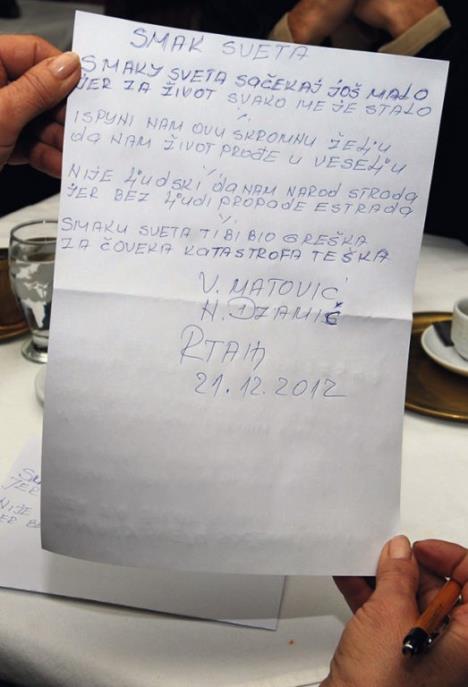 SMAK SVETA
SMAKY SVETA SAČEKAJ JOŠ MALO
JER ZA ŽIVOT SVAKO ME JE STALO
ISPYNI NAM OVU SKROMNU ŽEЉU
DA NAM ŽIVOT PROĐE U VESEЉU
NIJE ЉUDSKI DA NAM NAROD STRADA
JER BEZ ЉUDI PROPADE ESTRADA
SMAKU SVETA TI BI BIO GREŠKA
ZA ČOVEKA KATASTROFA TEŠKA
V. MATOVIĆ
H. DZAMIĆ
RTAЊ
21.12.2012
JER
NIJE